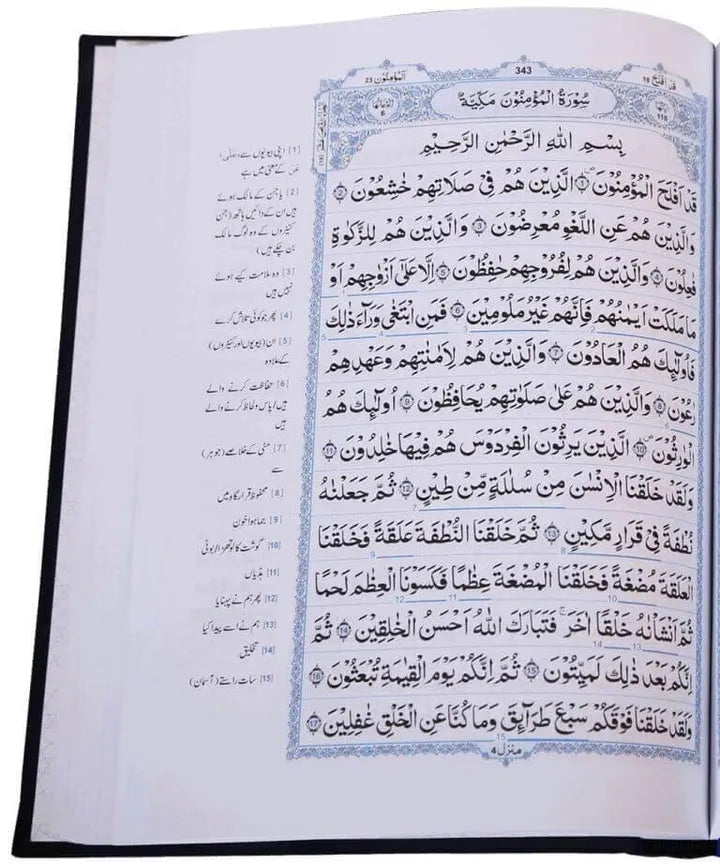 قَدْ اَفْلَحَ 18
343
اَلْمُؤْمِنُوْن 23
اٰیَاتُهَا 118
سُوْرَةُ الْمُؤْمِنُوْنَ مَكِّيَّةٌ
رُكُوْعَاتُهَا 6
بِسْمِ اللّٰهِ الرَّحْمٰنِ الرَّحِيْمِ
قَدْ اَفْلَحَ الْمُؤْمِنُوْنَ ۙ 1 الَّذِيْنَ هُمْ فِيْ صَلَاتِهِمْ خٰشِعُوْنَ 2
وَالَّذِيْنَ هُمْ عَنِ اللَّغْوِ مُعْرِضُوْنَ 3 وَالَّذِيْنَ هُمْ لِلزَّكٰوةِ
فٰعِلُوْنَ 4 وَالَّذِيْنَ هُمْ لِفُرُوْجِهِمْ حٰفِظُوْنَ 5 اِلَّا عَلٰٓى اَزْوَاجِهِمْ اَوْ
مَا مَلَكَتْ اَيْمٰنُهُمْ فَاِنَّهُمْ غَيْرُ مَلُوْمِيْنَ 6 فَمَنِ ابْتَغٰى وَرَآءَ ذٰلِكَ
فَاُولٰٓئِكَ هُمُ الْعَادُوْنَ 7 وَالَّذِيْنَ هُمْ لِاَمٰنٰتِهِمْ وَعَهْدِهِمْ
رٰعُوْنَ 8 وَالَّذِيْنَ هُمْ عَلٰى صَلَوٰتِهِمْ يُحَافِظُوْنَ 9 اُولٰٓئِكَ هُمُ
الْوٰرِثُوْنَ 10 الَّذِيْنَ يَرِثُوْنَ الْفِرْدَوْسَ هُمْ فِيْهَا خٰلِدُوْنَ 11
وَلَقَدْ خَلَقْنَا الْاِنْسٰنَ مِنْ سُلٰلَةٍ مِّنْ طِيْنٍ 12 ثُمَّ جَعَلْنٰهُ
نُطْفَةً فِيْ قَرَارٍ مَّكِيْنٍ 13 ثُمَّ خَلَقْنَا النُّطْفَةَ عَلَقَةً فَخَلَقْنَا
الْعَلَقَةَ مُضْغَةً فَخَلَقْنَا الْمُضْغَةَ عِظٰمًا فَكَسَوْنَا الْعِظٰمَ لَحْمًا
ثُمَّ اَنْشَاْنٰهُ خَلْقًا اٰخَرَ فَتَبَارَكَ اللّٰهُ اَحْسَنُ الْخٰلِقِيْنَ 14 ثُمَّ
اِنَّكُمْ بَعْدَ ذٰلِكَ لَمَيِّتُوْنَ 15 ثُمَّ اِنَّكُمْ يَوْمَ الْقِيٰمَةِ تُبْعَثُوْنَ 16
وَلَقَدْ خَلَقْنَا فَوْقَكُمْ سَبْعَ طَرَآئِقَ وَمَا كُنَّا عَنِ الْخَلْقِ غٰفِلِيْنَ 17
منزل 4
[1] اپنی بیویوں سے، عَلٰى،
عَنْ کے معنی میں ہے
[2] یا جن کے مالک ہوئے
ہیں ان کے دائیں ہاتھ (جن
کنیزوں کے وہ لوگ مالک
بن چکے ہیں)
[3] وہ ملامت کیے ہوئے
نہیں ہیں
[4] پھر جو کوئی تلاش کرے
[5] ان (بیویوں اور کنیزوں)
کے علاوہ
[6] حفاظت کرنے والے
ہیں/ پاس و لحاظ کرنے والے
ہیں
[7] مٹی کے خلاصے (جوہر)
سے
[8] محفوظ قرار گاہ میں
[9] جما ہوا خون
[10] گوشت کا لوتھڑا/ بوٹی
[11] ہڈیاں
[12] پھر ہم نے پہنایا
[13] ہم نے اسے پیدا کیا
[14] تخلیق
[15] سات راستے (آسمان)